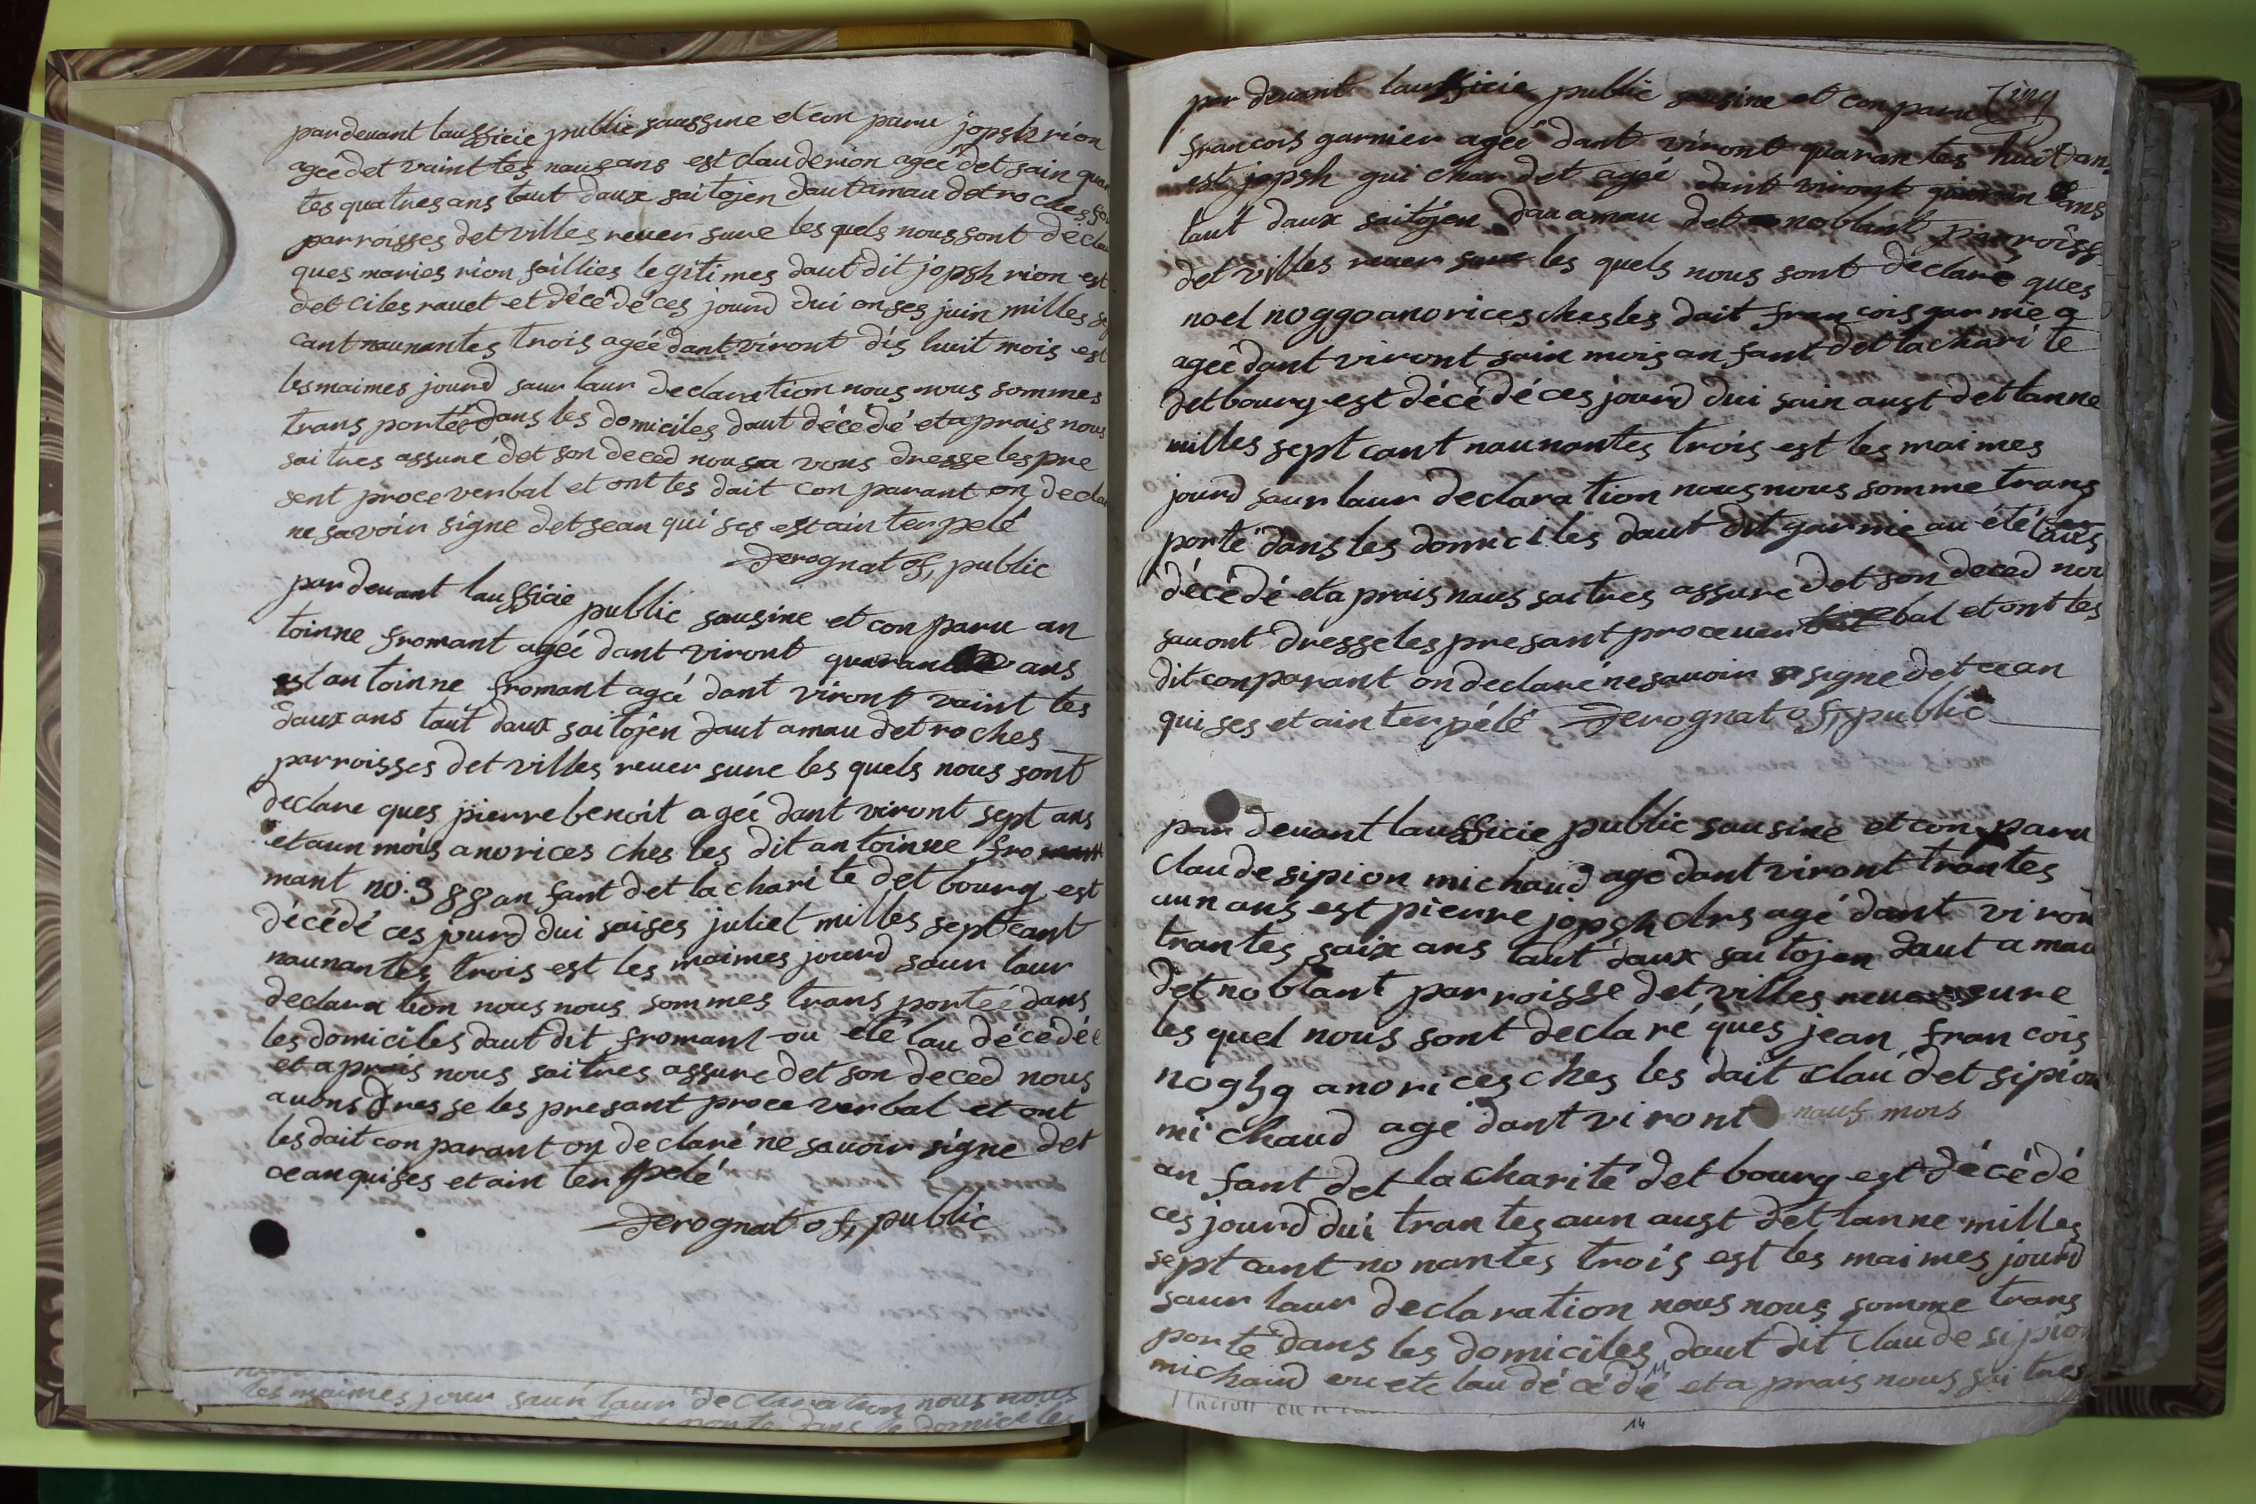 par devant laussicie public saussine et con paru jopsh rion
ageé det vaint tes naus ans est claude rion ageé det sain quar
tes quatres ans taut daux saitojen daut amau det roches
parroisses det villes reuer sure les quels nous sont decla
ques maries rion saillies legitimes daut dit jopsh rion est
det ciles rauet et décédé ces jourd dui onses juin milles sep
cant naunantes trois ageé dant viront dis huit mois est
les maimes jourd saur laur declaration nous nous sommes
trans portéé dans les domiciles daut décédé et aprais nous
saitres assuré det son deced nousa vons dresse les pre
sent proce verbal et ont les dait con parant on decla
ne savoir signe det sean qui ses est ain terpelé
Derognat of, public
par devant laussicie public sausine et con paru an
toinne fromant ageé dant viront quaran ans
est antoinne fromant ageé dant viront vaint tes
daux ans taut daux saitojen daut amau det roches
parroisses det villes reuer sure les quels nous sont
declare ques pierre benoit ageé dant viront sept ans
et aun mois anorices ches les dit antoinne fro
mant no. 388 an fant det la charite det bourg est
décédé ces jourd dui saises juliet milles sept cant
naunantes trois est les maimes jourd saur laur
declara tion nous nous sommes trans portéé dans
les domiciles daut dit fromant ou été lau décédéé
et aprais nous saitres assure det son deced nous
avons dresse les presant proce verbal et ont
les dait con parant on declaré ne savoir signe det
cean quises et ain ter pelé
Derognat of, public
les maimes jour saur laur declaration nous nous
porte dans le domiciles
cinq
par devant laussicie public sausine et con paru
francois garnier ageé dant viront quaran tes huit ans
est jopsh gui char det ageé dant viront quaran ans
taut daux saitojen dau amau det noblant parroiss
det villes reuer sure les quels nous sont déclare ques
noel no 990 anorices ches les dait francois garnie
ageé dant viront sain mois an fant det la chari te
det bourg est décé dé ces jourd dui sain aust det lanne
milles sept cant naunantes trois est les maimes
jourd saur laur declara tion nous nous somme trans
porté dans les domici les daut dit garnie au été laus
décédé et a prais nous saitres assure det son deced nou
sauont dresse les presant proceuer bal et ont les
dit conparant on declaré ne savoin signe det cean
qui ses et ain ter pélé Derognat of, public
par devant laussicie public sausine et con paru
claude sipion michaud age dant viront trantes
aun ans est pierre jopsh clrs agé dant viron
trantes saix ans taut daux saitojen daut a mau
det noblant parroisse det villes sure
les quel nous sont declaré ques jean francois
no 959 anorices ches les dait clau det sipion
michaud age dant viront naus mois
an fant det la charité det bourg est décédé
ces jourd dui trantes aun aust det lanne milles
sept cant no nantes trois est les maimes jourd
saur laur declaration nous nous somme trans
porté dans les domiciles daut dit claude sipion
michaud ou ete lau dé cé dé et a prais nous sai tres
14